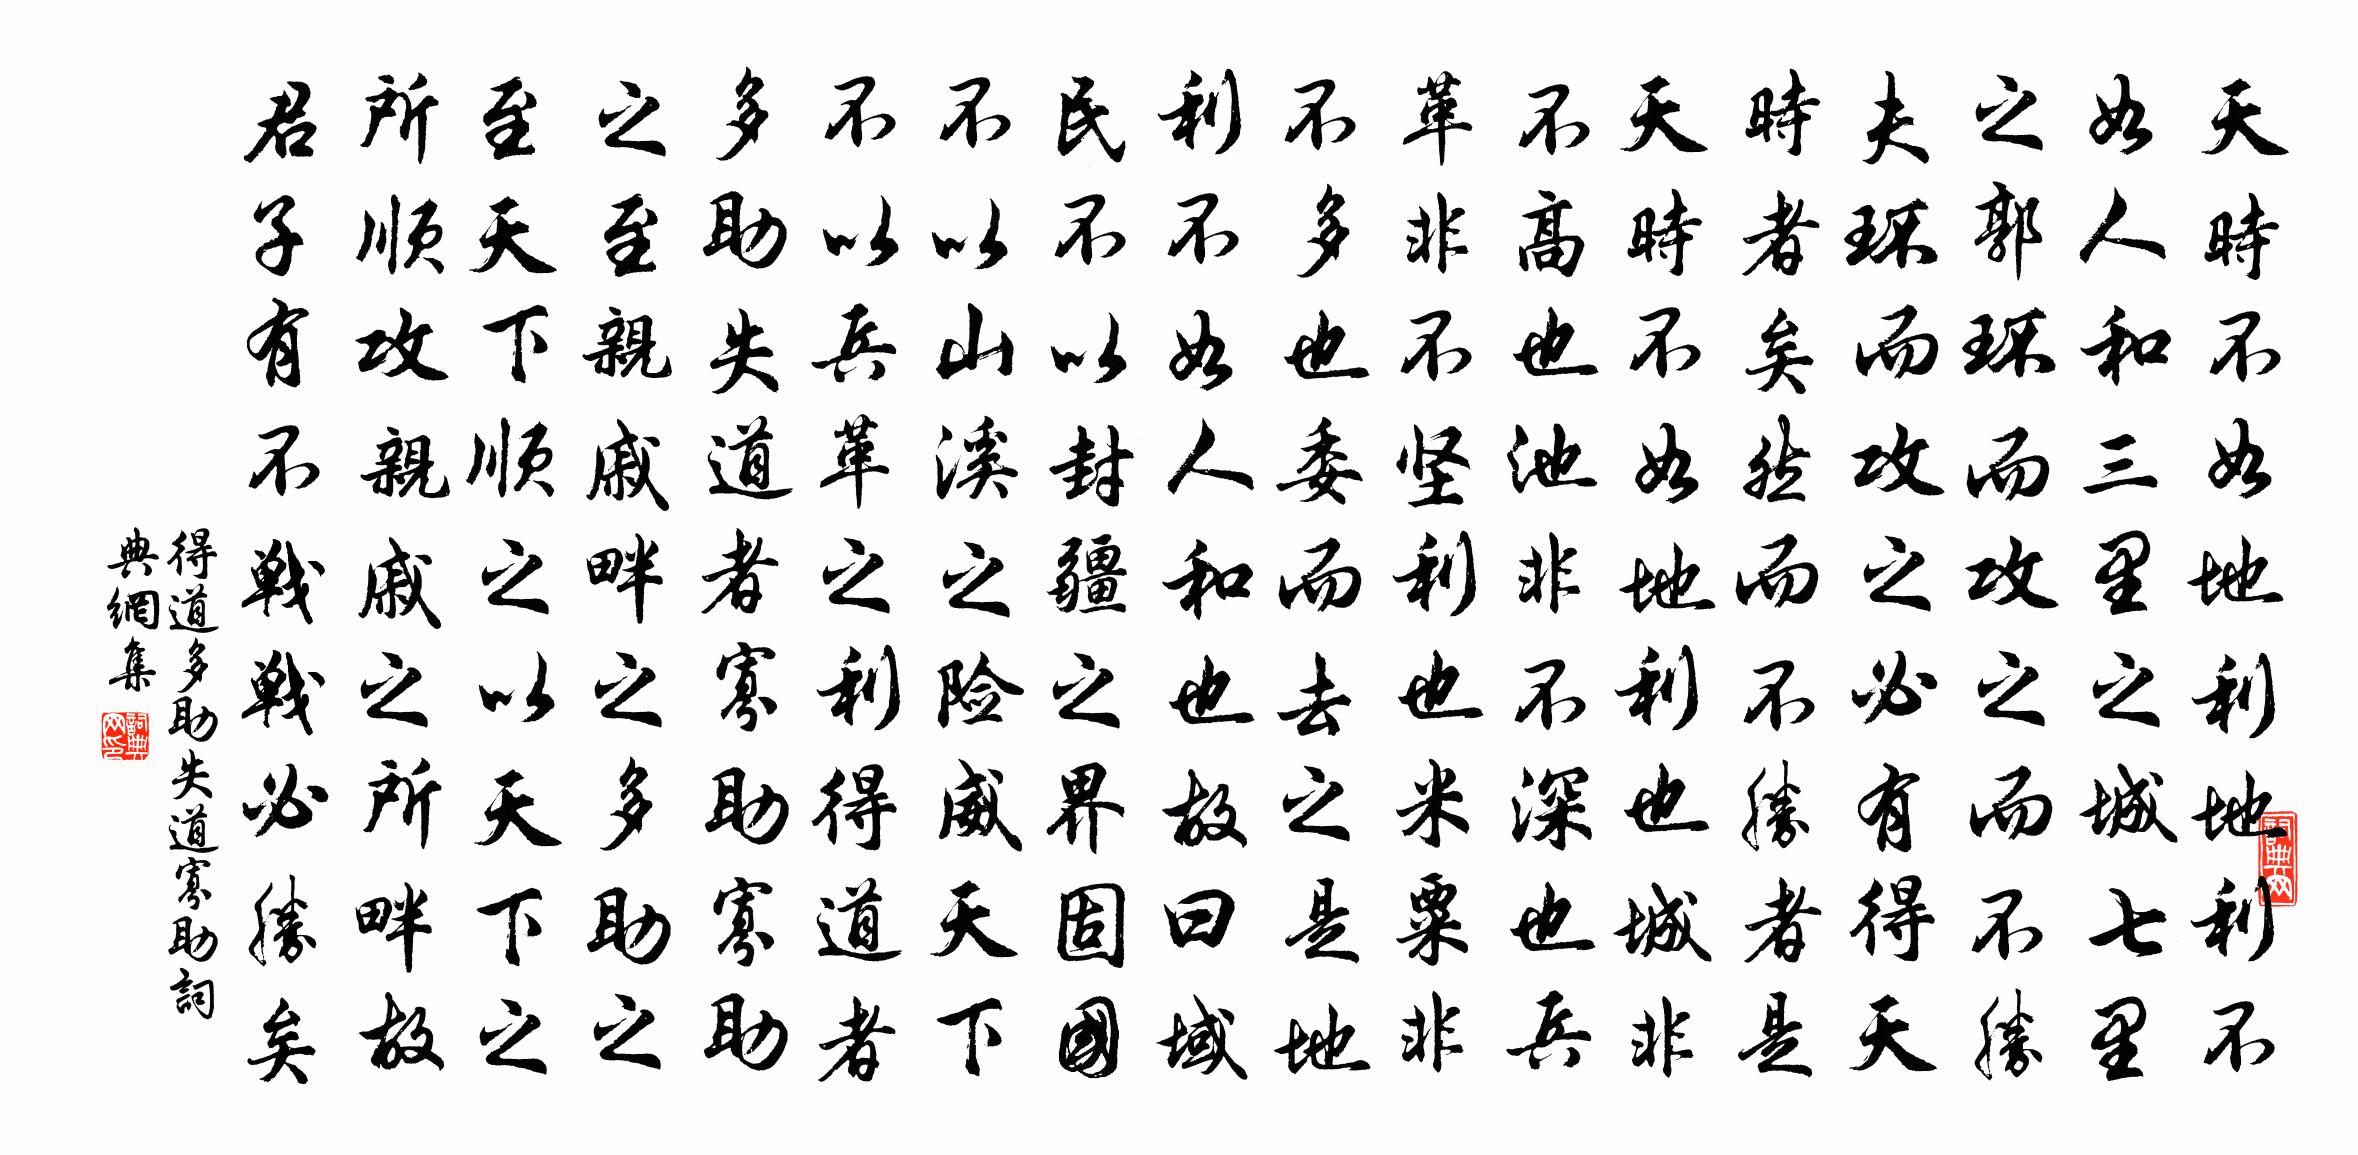 天時不如地利地利不
如人和三里之城七里
之郭环而攻之而不勝
夫环而攻之必有得天
時者矣然而不勝者是
天時不如地利也城非
不高也池非不深也兵
革非不坚利也米粟非
不多也委而去之是地
利不如人和也故曰域
民不以封疆之界固國
不以山溪之险威天下
不以兵革之利得道者
多助失道者寡助寡助
之至親戚畔之多助之
至天下顺之以天下之
所顺攻親戚之所畔故
君子有不戰戰必勝矣
得道多助失道寡助詞
典網集
詞典网印
詞典网